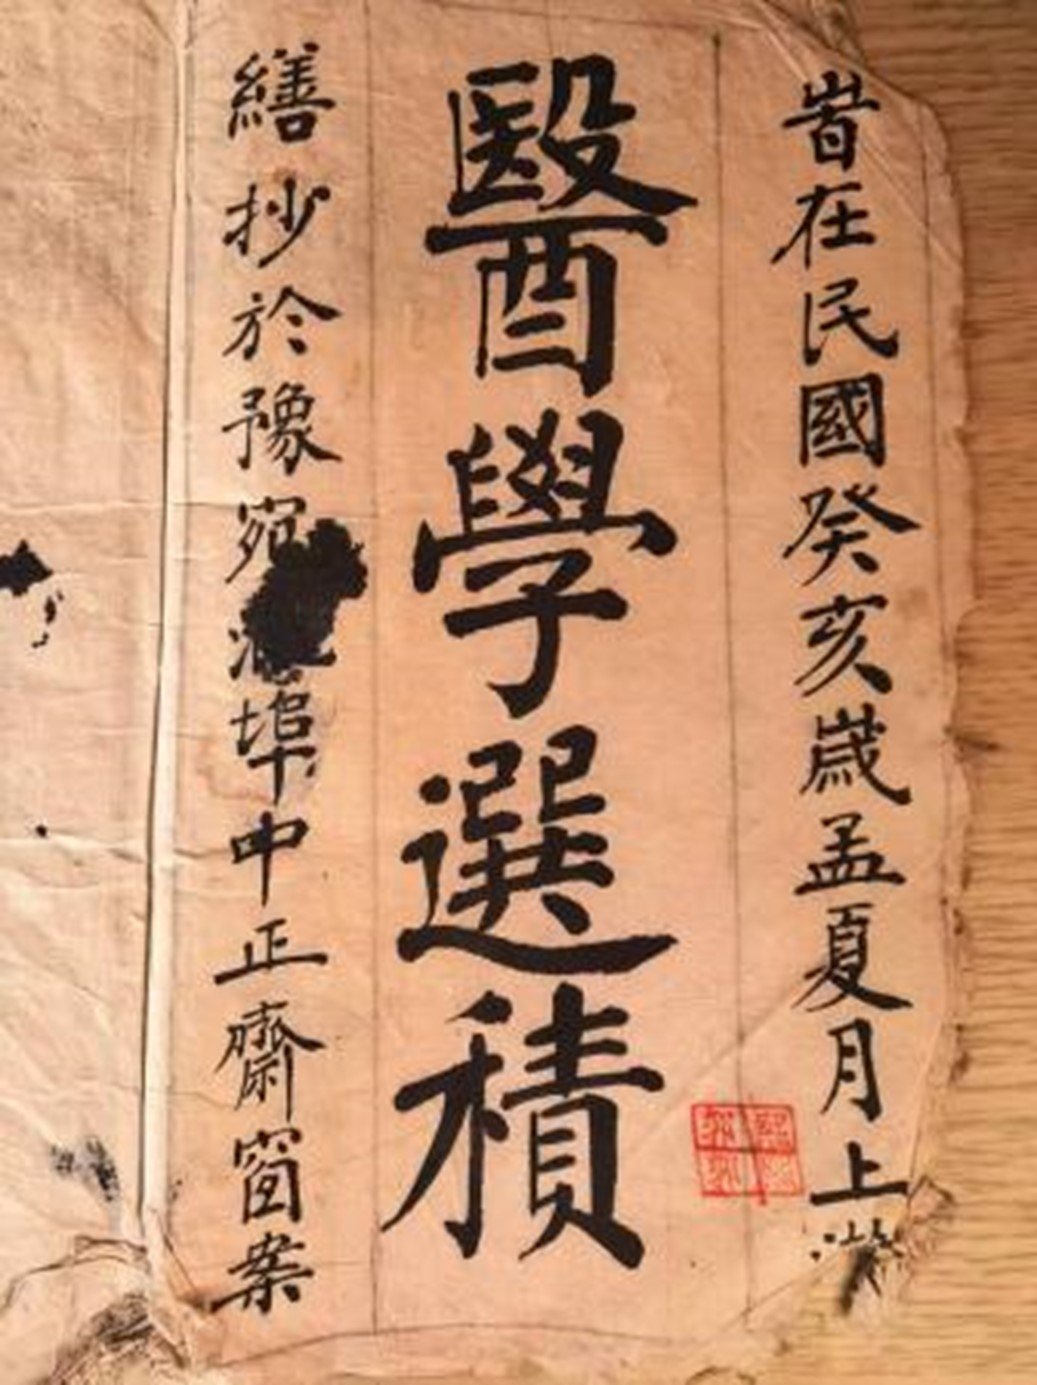 旹在民國癸亥歲孟夏月上
醫學選積
繕抄於豫宛 埠中正齋窗案